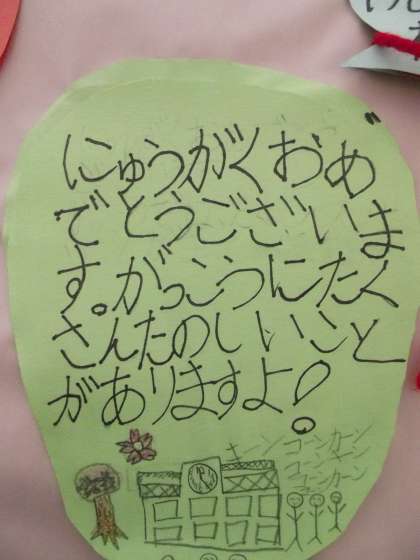 にゅうがくおめ
でとうございま
す。がっこうにたく
さんたのしいこと
がありますよ!
キーンコーンカーン
コーンキーン
コーンカーン